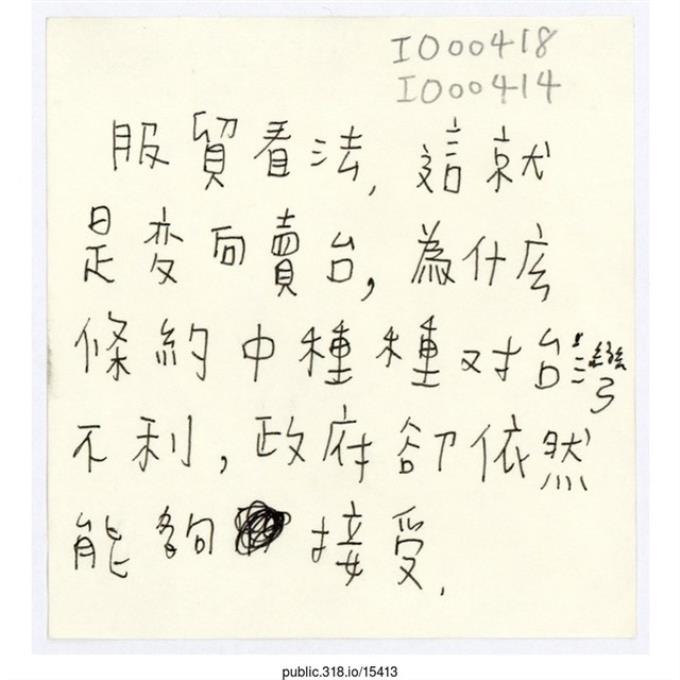 I000418
I000414
服貿看法，這就
是変向賣台，為什庅
條約中種種对台灣
不利，政府卻依然
能夠接受.
public.318.io/15413